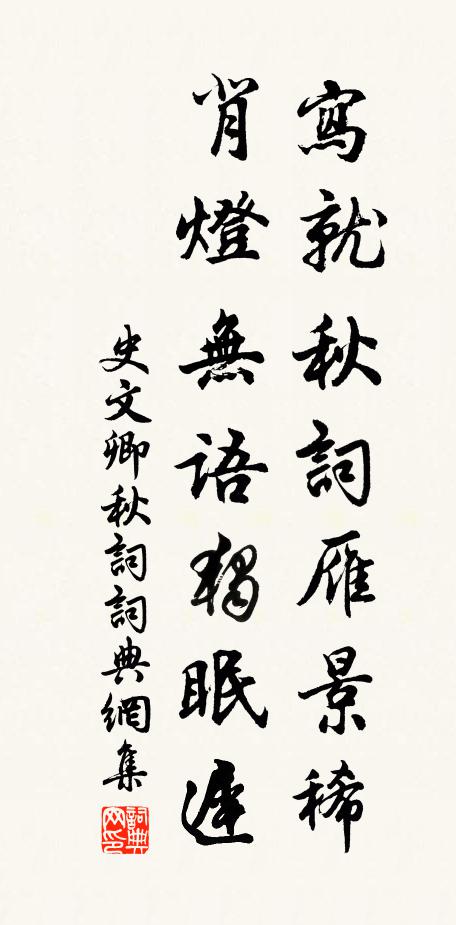 寫就秋詞雁景稀
背燈無語獨眠遲
史文卿秋詞詞典網集
詞典網印